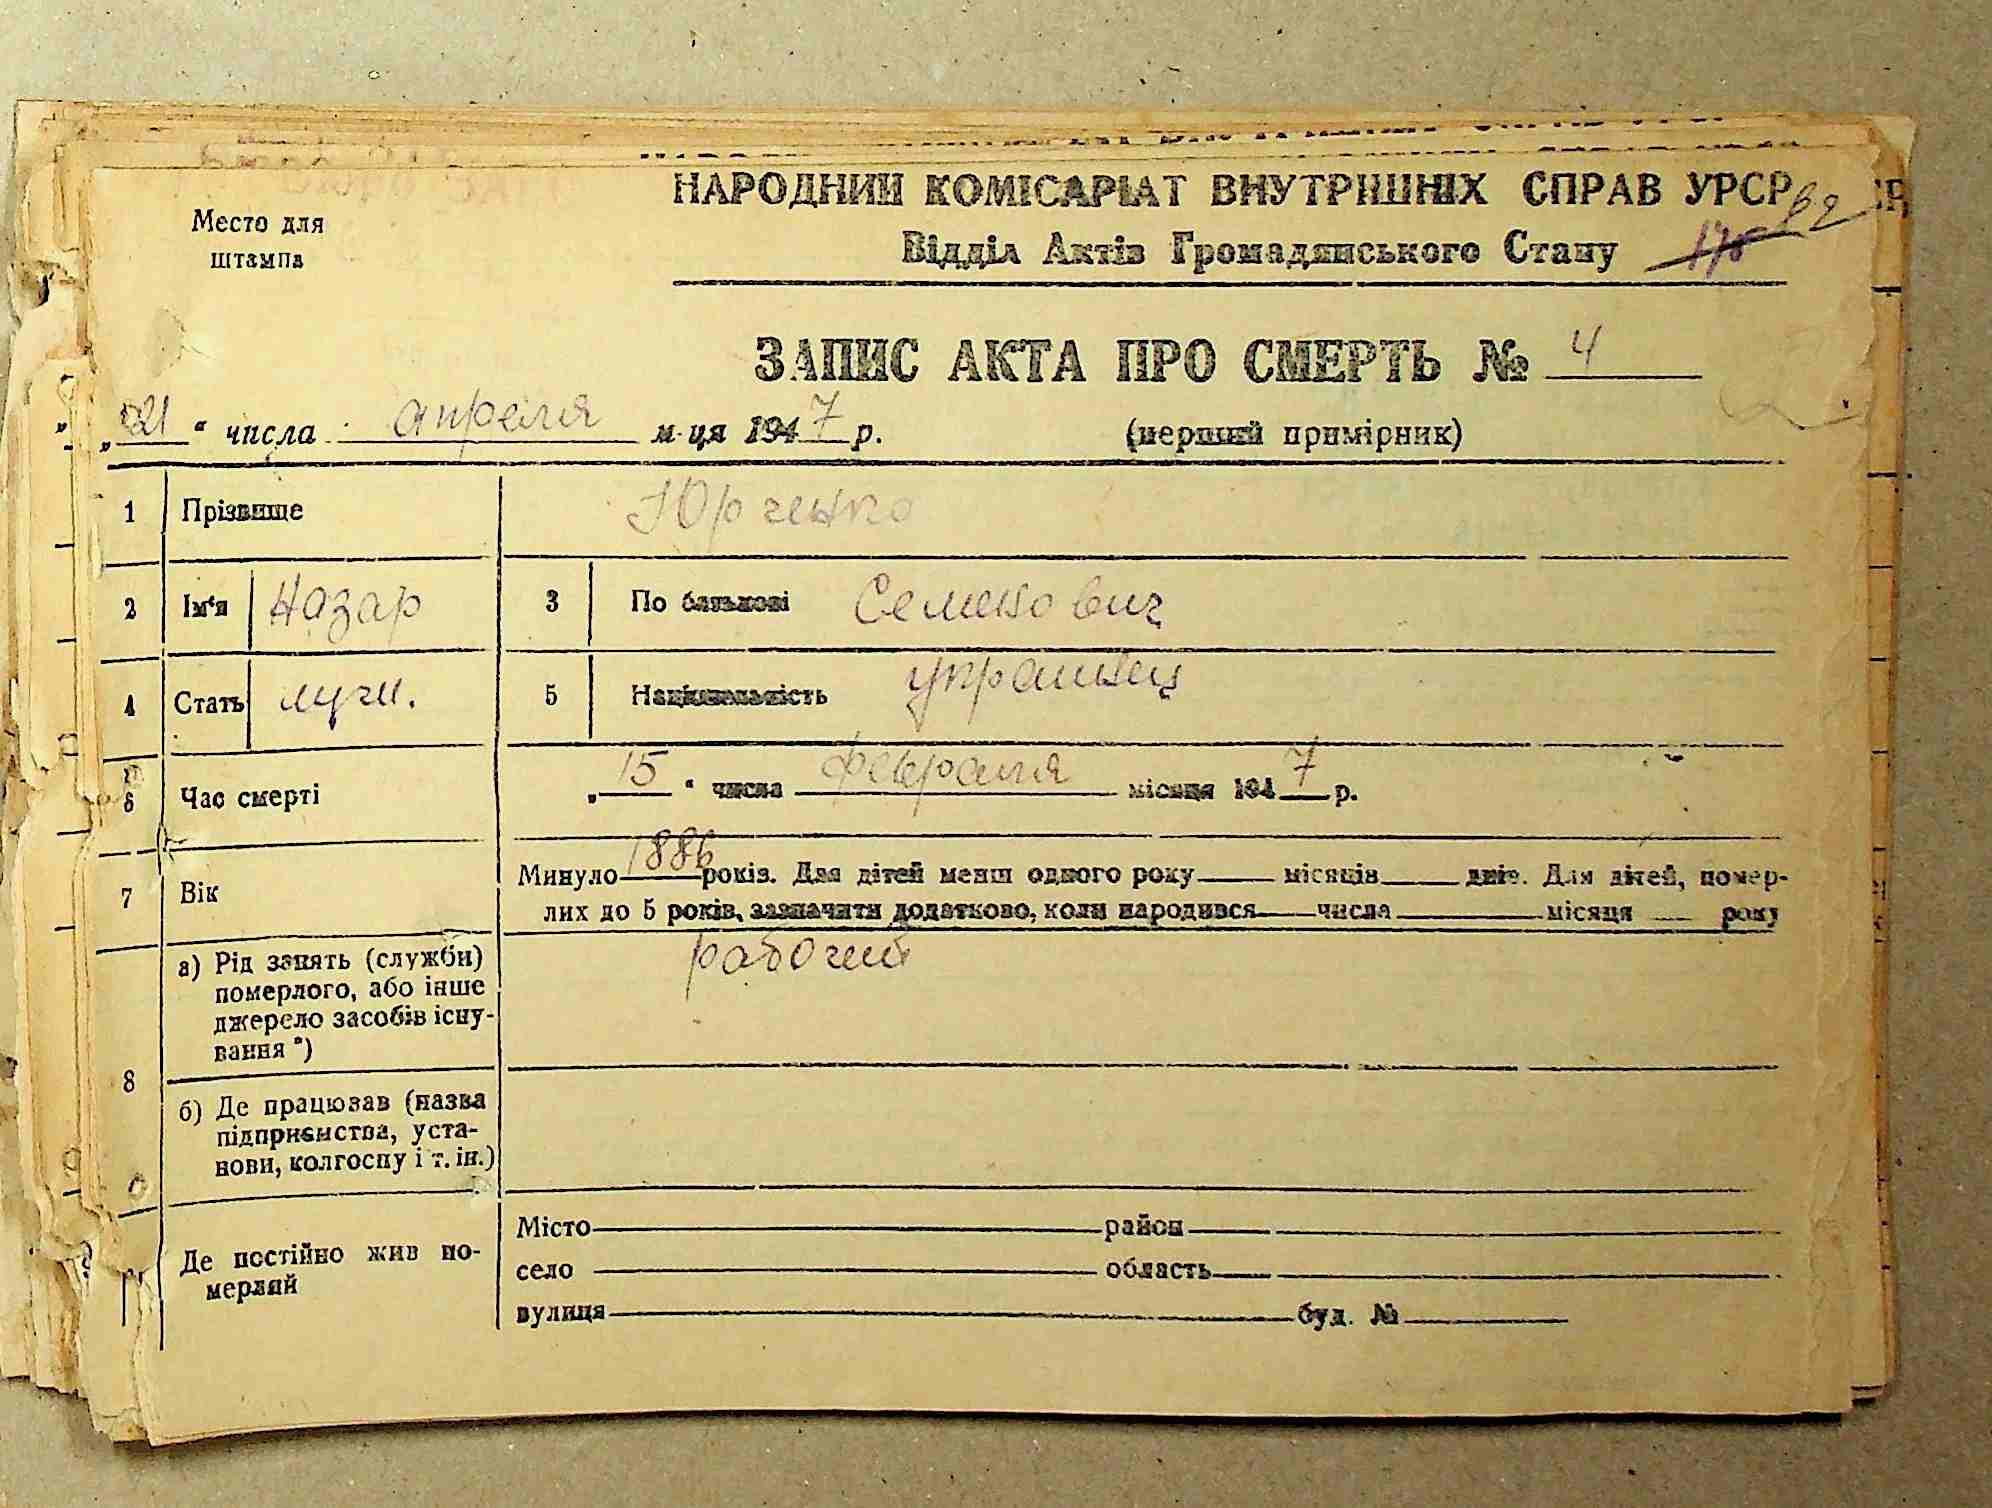 НАРОДНИЙ КОМІСАРІАТ ВНУТРІШНІХ СПРАВ УРСР
Место для
штампа
Відділ Актів Громадянського Стану
62
ЗАПИС АКТА ПРО СМЕРТЬ № 4
„21“ числа апреля м-ця 1947 р.
(перший примірник)
1 Прізвище Юрченко
2 Ім'я Назар 3 По батькові Семенович
4 Стать муж. 5 Національність украинец
6 Час смерті „15“ числа февраля місяця 1947 р.
7 Вік Минуло 1886 років. Для дітей менш одного року місяців днів. Для дітей, помер-
лих до 5 років, зазначити додатково, коли народився числа місяця року
8 а) Рід занять (служби) рабочий
померлого, або інше
джерело засобів існу-
вання *)
б) Де працював (назва
підприємства, уста-
нови, колгоспу і т. ін.)
Де постійно жив по-
мерлий
Місто район
село область
вулиця буд. №